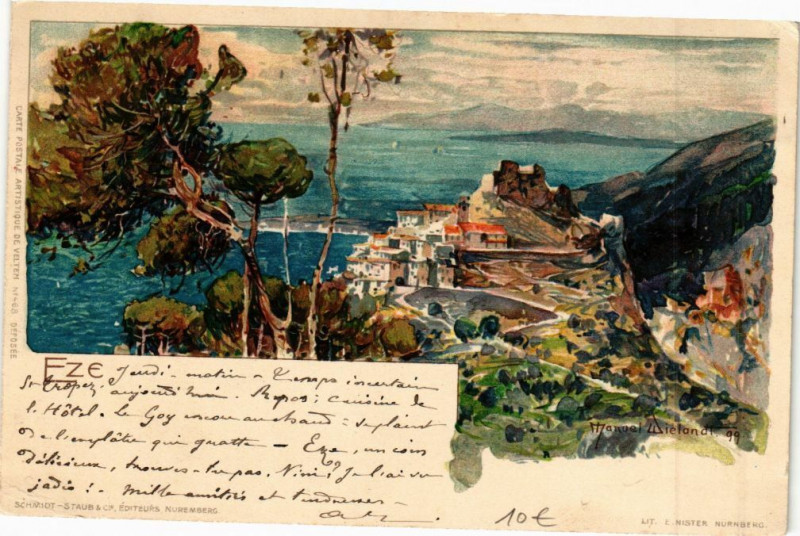 CARTE POSTALE ARTISTIQUE DE VELTEN Nº468 DÉPOSÉE
EZE
Jeudi - matin - Temps incertain
St Tropez, aujourd'hui. Repos; cuisine de
l'Hôtel. Le Goy au chaud - se plaint
de l'emplâtre qui gratte - Eze, un coin
délicieux, trouves-tu pas, Nini? Je l'ai vu
jadis! - Mille amitiés et tendresses -
Manuel Wielandt 99
SCHMIDT-STAUB & Cº, ÉDITEURS NUREMBERG.
10€
LIT. E. NISTER NURNBERG.